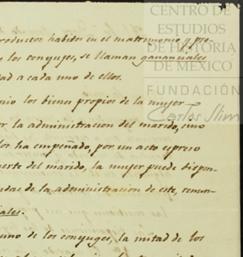 CENTRO DE
ESTUDIOS
DE HISTORIA
DE MÉXICO
FUNDACIÓN
Carlos Slim
productos habitos en el matrimonio y
los conyuges, se llaman gananciales
dad a cada uno de ellos.
nio los bienes propios de la mujer
or la administracion del marido, sino
los ha empeñado, por un acto espreso
uerte del marido, la mujer puede dispon-
udas de la administracion de este, renun-
iales.
uno de los conyuges, la mitad de los